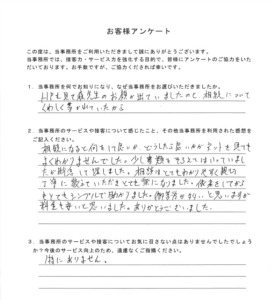 お客様アンケート
この度は、当事務所をご利用いただきまして誠にありがとうございます。
当事務所では、接客力・サービス力を強化する目的で、皆様にアンケートのご協力をいた
だいております。お手数ですが、ご協力くだされば幸いです。
1. 当事務所を何でお知りになり、なぜ当事務所をお選びいただきましたか。
HPを見て 先生のお顔が出ていましたのと 相続について
くわしく書が出ていたから
2. 当事務所のサービスや接客について感じたこと、その他当事務所を利用された感想を
ご記入ください。
相続になると何をして良いか どうしたら良いかがネットを見ても
よくわかりませんでした。少し書類も
が 相談はとてもわかりやすく親切
丁寧に教えていただきとても になりました。依頼をしてから
とてもシンプルで助かりました。 と思いますが
料金も 思いました。ありがとうございました。
3. 当事務所のサービスや接客についてお気に召さない点はありませんでしたでしょう
か？今後のサービス向上のため、遠慮なくご指摘ください。
特にありません。